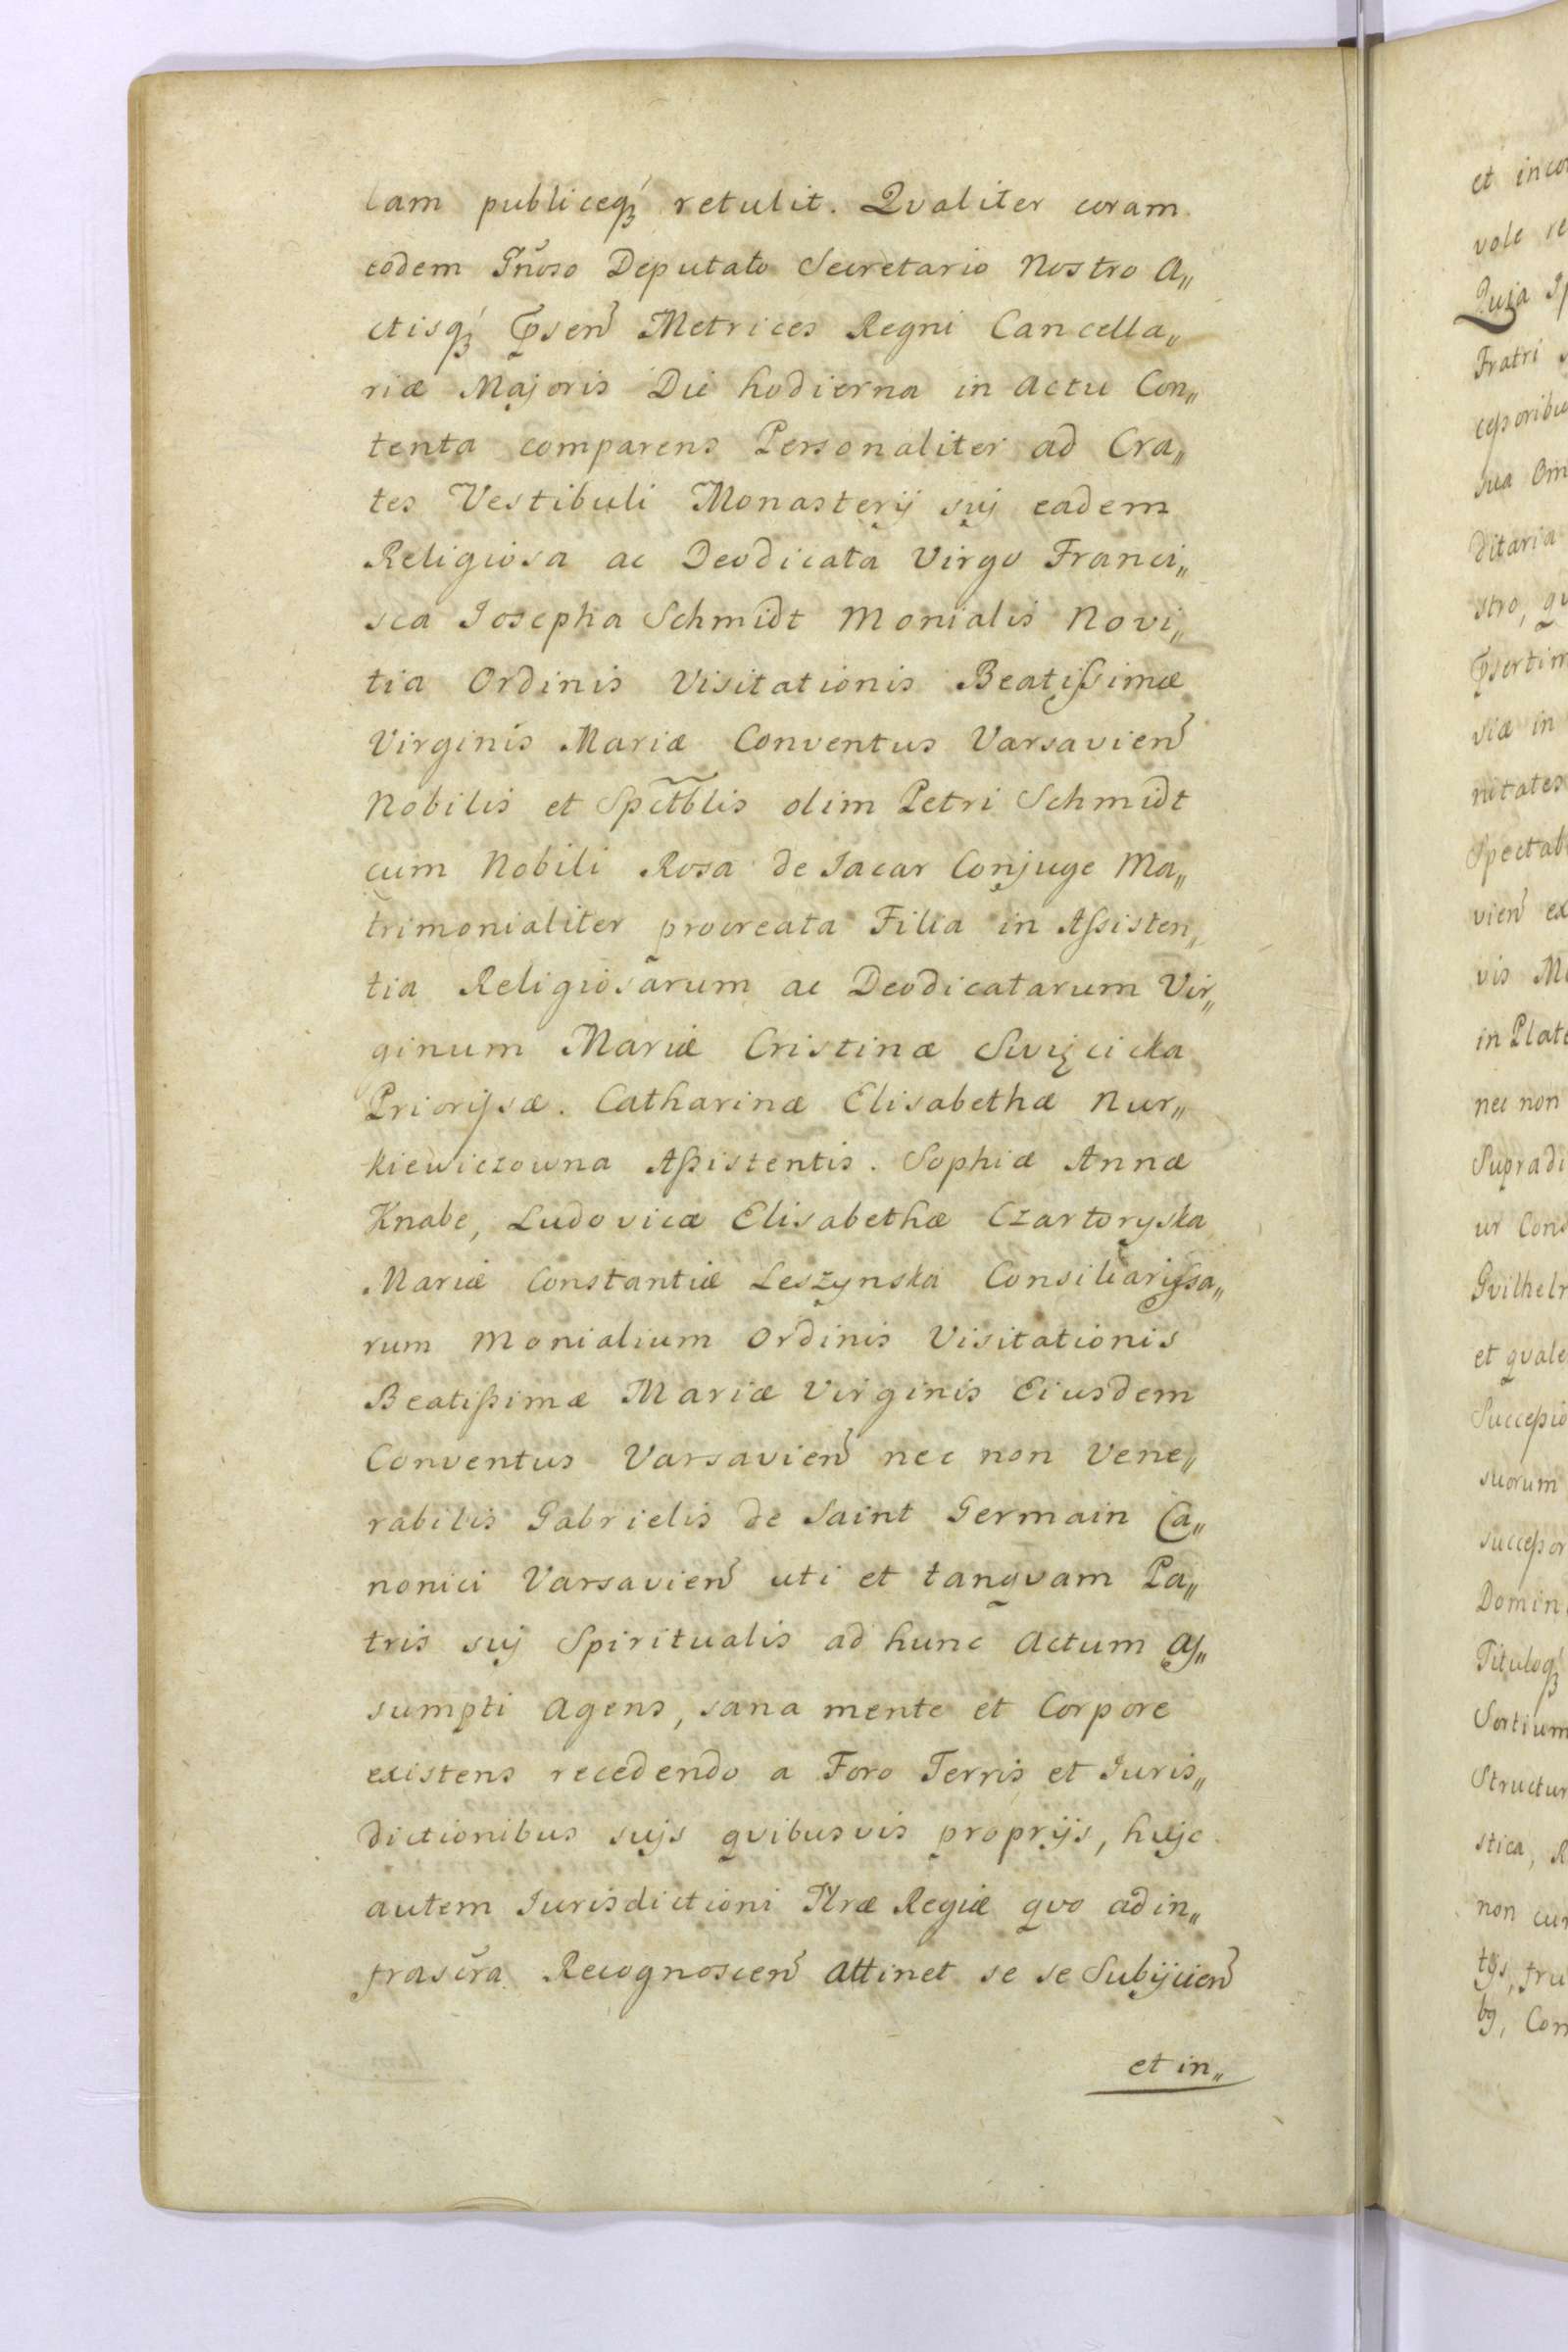 lam publiceqꝫ retulit. Qvaliter coram
eodem Gnoso Deputato Secretario Nostro A„
ctisqꝫ Psen̄ Metrices Regni Cancella„
riæ Majoris Die hodierna in Actu Con„
tenta comparens Personaliter ad Cra„
tes Vestibuli Monasterij suj eadem
Religiosa ac Deodicata Virgo Franci„
sca Josepha Schmidt Monialis Novi„
tia Ordinis Visitationis Beatissimæ
Virginis Mariæ Conventus Varsavien̄
Nobilis et Spctblis olim Petri Schmidt
cum Nobili Rosa de Jacar Conjuge Ma„
trimonialiter procreata Filia in Assisten„
tia Religiosarum ac Deodicatarum Vir„
ginum Mariæ Cristinæ Swięcicka
Priorissæ. Catharinæ Elisabethæ Nur„
kiewiczowna Assistentis. Sophiæ Annæ
Knabe, Ludovicæ Elisabethæ Czartoryska
Mariæ Constantiæ Leszynska Consiliarissa„
rum Monialium Ordinis Visitationis
Beatissimæ Mariæ Virginis Eiusdem
Conventus Varsavien̄ nec non Vene„
rabilis Gabrielis de Saint Germain Ca„
nonici Varsavien̄ uti et tanqvam Pa„
tris suj Spiritualis ad hunc Actum As„
sumpti Agens, sana mente et Corpore
existens recedendo a Foro Terris et Juris„
dictionibus sujs qvibusvis proprijs, hujc
autem Jurisdictioni Nræ Regiæ qvo ad in„
frascr̄a Recognoscen̄ attinet se se Subijcien̄
et in„
et inco
vole re
Quia
Fratri
cessoribu
sua Om
ditaria
stro, qv
Psertim
viæ in
nitates
Spectab
vien̄ ex
vis M
in Plate
nec non
Supradi
ur Cons
Gvilhel
et qvale
Successio
suorum
successor
Domin
Tituloqꝫ
Sortium
Structur
stica, R
non cu
tijs, fru
bꝯ, Con